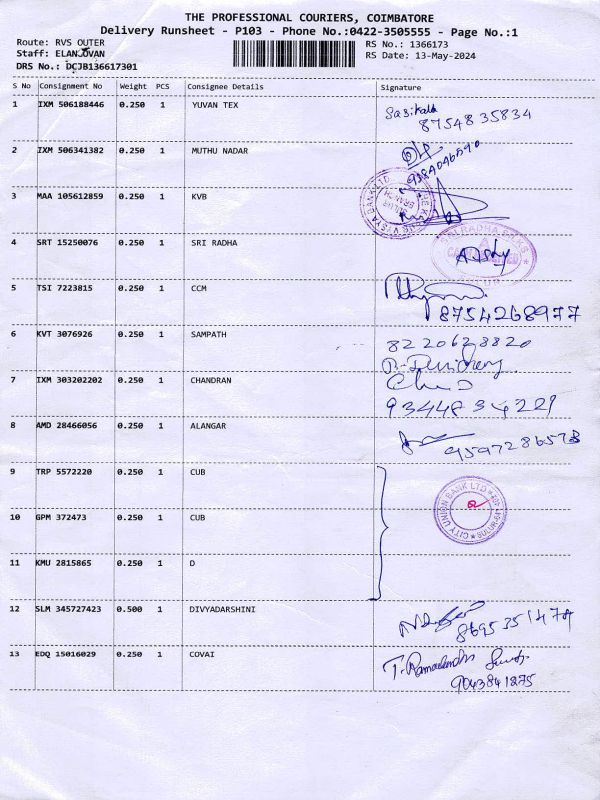 THE PROFESSIONAL COURIERS, COIMBATORE
Delivery Runsheet - P103 - Phone No.:0422-3505555 - Page No.:1
Route: RVS OUTER RS No.: 1366173
Staff: ELANJOVAN RS Date: 13-May-2024
DRS No.: DCJB136617301
S No Consignment No Weight PCS Consignee Details Signature
1 IXM 506188446 0.250 1 YUVAN TEX Sasikala
8754835834
2 IXM 506341382 0.250 1 MUTHU NADAR
3 MAA 105612859 0.250 1 KVB
VYSYA BANK LTD
SULUR
BRANCH
4 SRT 15250076 0.250 1 SRI RADHA
SRI RADHA
5 TSI 7223815 0.250 1 CCM
8754268977
6 KVT 3076926 0.250 1 SAMPATH 8220628820
7 IXM 303202202 0.250 1 CHANDRAN
9344834221
8 AMD 28466056 0.250 1 ALANGAR
9597286573
9 TRP 5572220 0.250 1 CUB
CITY UNION BANK LTD
SULUR
10 GPM 372473 0.250 1 CUB
11 KMU 2815865 0.250 1 D
12 SLM 345727423 0.500 1 DIVYADARSHINI
13 EDQ 15016029 0.250 1 COVAI
9043841875